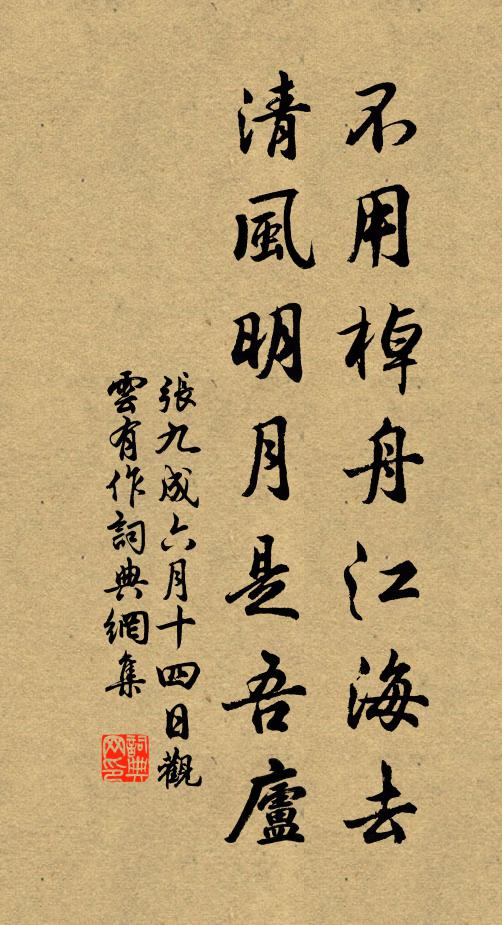 不用棹舟江海去
清風明月是吾廬
張九成六月十四日觀
雲有作詞典網集
詞典
网印